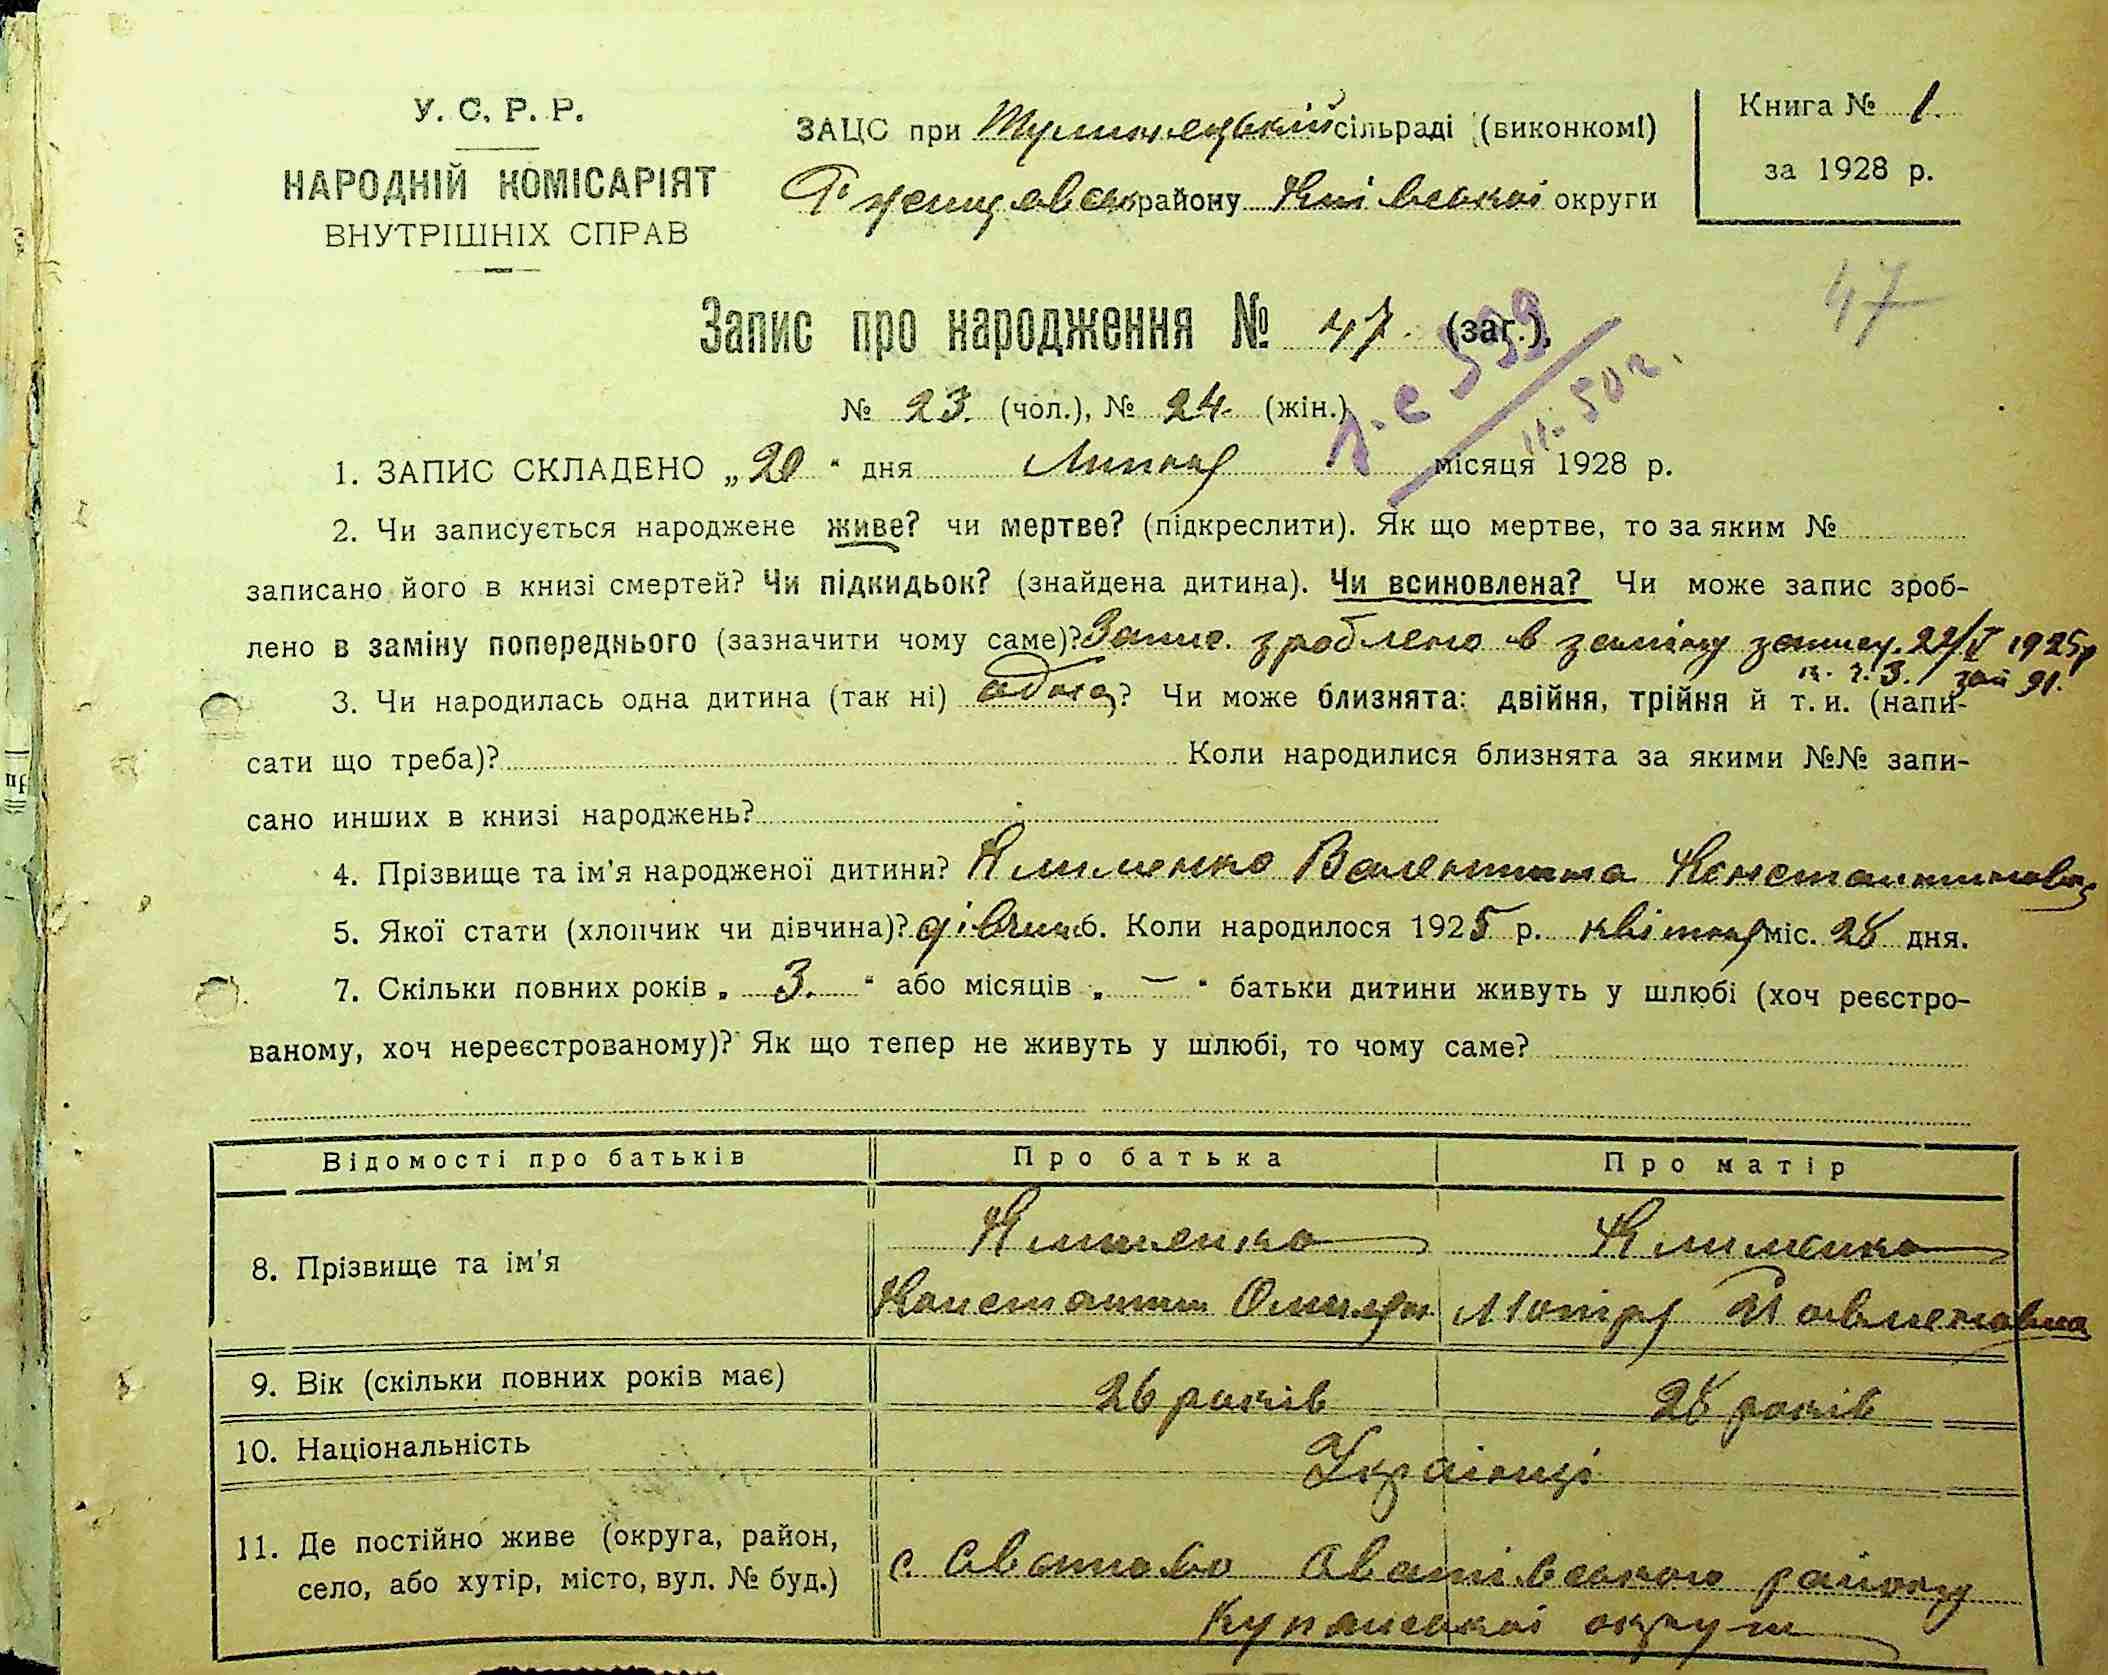 У. С. Р. Р.
НАРОДНІЙ КОМІСАРІЯТ
ВНУТРІШНІХ СПРАВ
ЗАЦС при сільраді (виконкомі)
району Київської округи
Книга № 1.
за 1928 р.
47
Запис про народження № 47. (заг.),
№ 23. (чол.), № 24. (жін.)
1. ЗАПИС СКЛАДЕНО „20“ дня Липня місяця 1928 р.
2. Чи записується народжене живе? чи мертве? (підкреслити). Як що мертве, то за яким №
записано його в книзі смертей? Чи підкидьок? (знайдена дитина). Чи всиновлена? Чи може запис зроб-
лено в заміну попереднього (зазначити чому саме)? Запис зроблено в заміну запису. 22/V 1925р
3. Чи народилась одна дитина (так ні) одна? Чи може близнята: двійня, трійня й т. и. (напи-
сати що треба)? Коли народилися близнята за якими №№ запи-
сано инших в книзі народжень?
4. Прізвище та ім'я народженої дитини? Клименко Валентина Константиновна
5. Якої стати (хлопчик чи дівчина)? дівчина 6. Коли народилося 1925 р. квітня міс. 28 дня.
7. Скільки повних років „ 3. “ або місяців „ — “ батьки дитини живуть у шлюбі (хоч реєстро-
ваному, хоч нереєстрованому)? Як що тепер не живуть у шлюбі, то чому саме?
Відомості про батьків Про батька Про матір
8. Прізвище та ім'я Клименко Клименко
Константин
9. Вік (скільки повних років має) 26 років 28 років
10. Національність Українці
11. Де постійно живе (округа, район, с. Сватово Сватівського району
село, або хутір, місто, вул. № буд.) Купянської округи